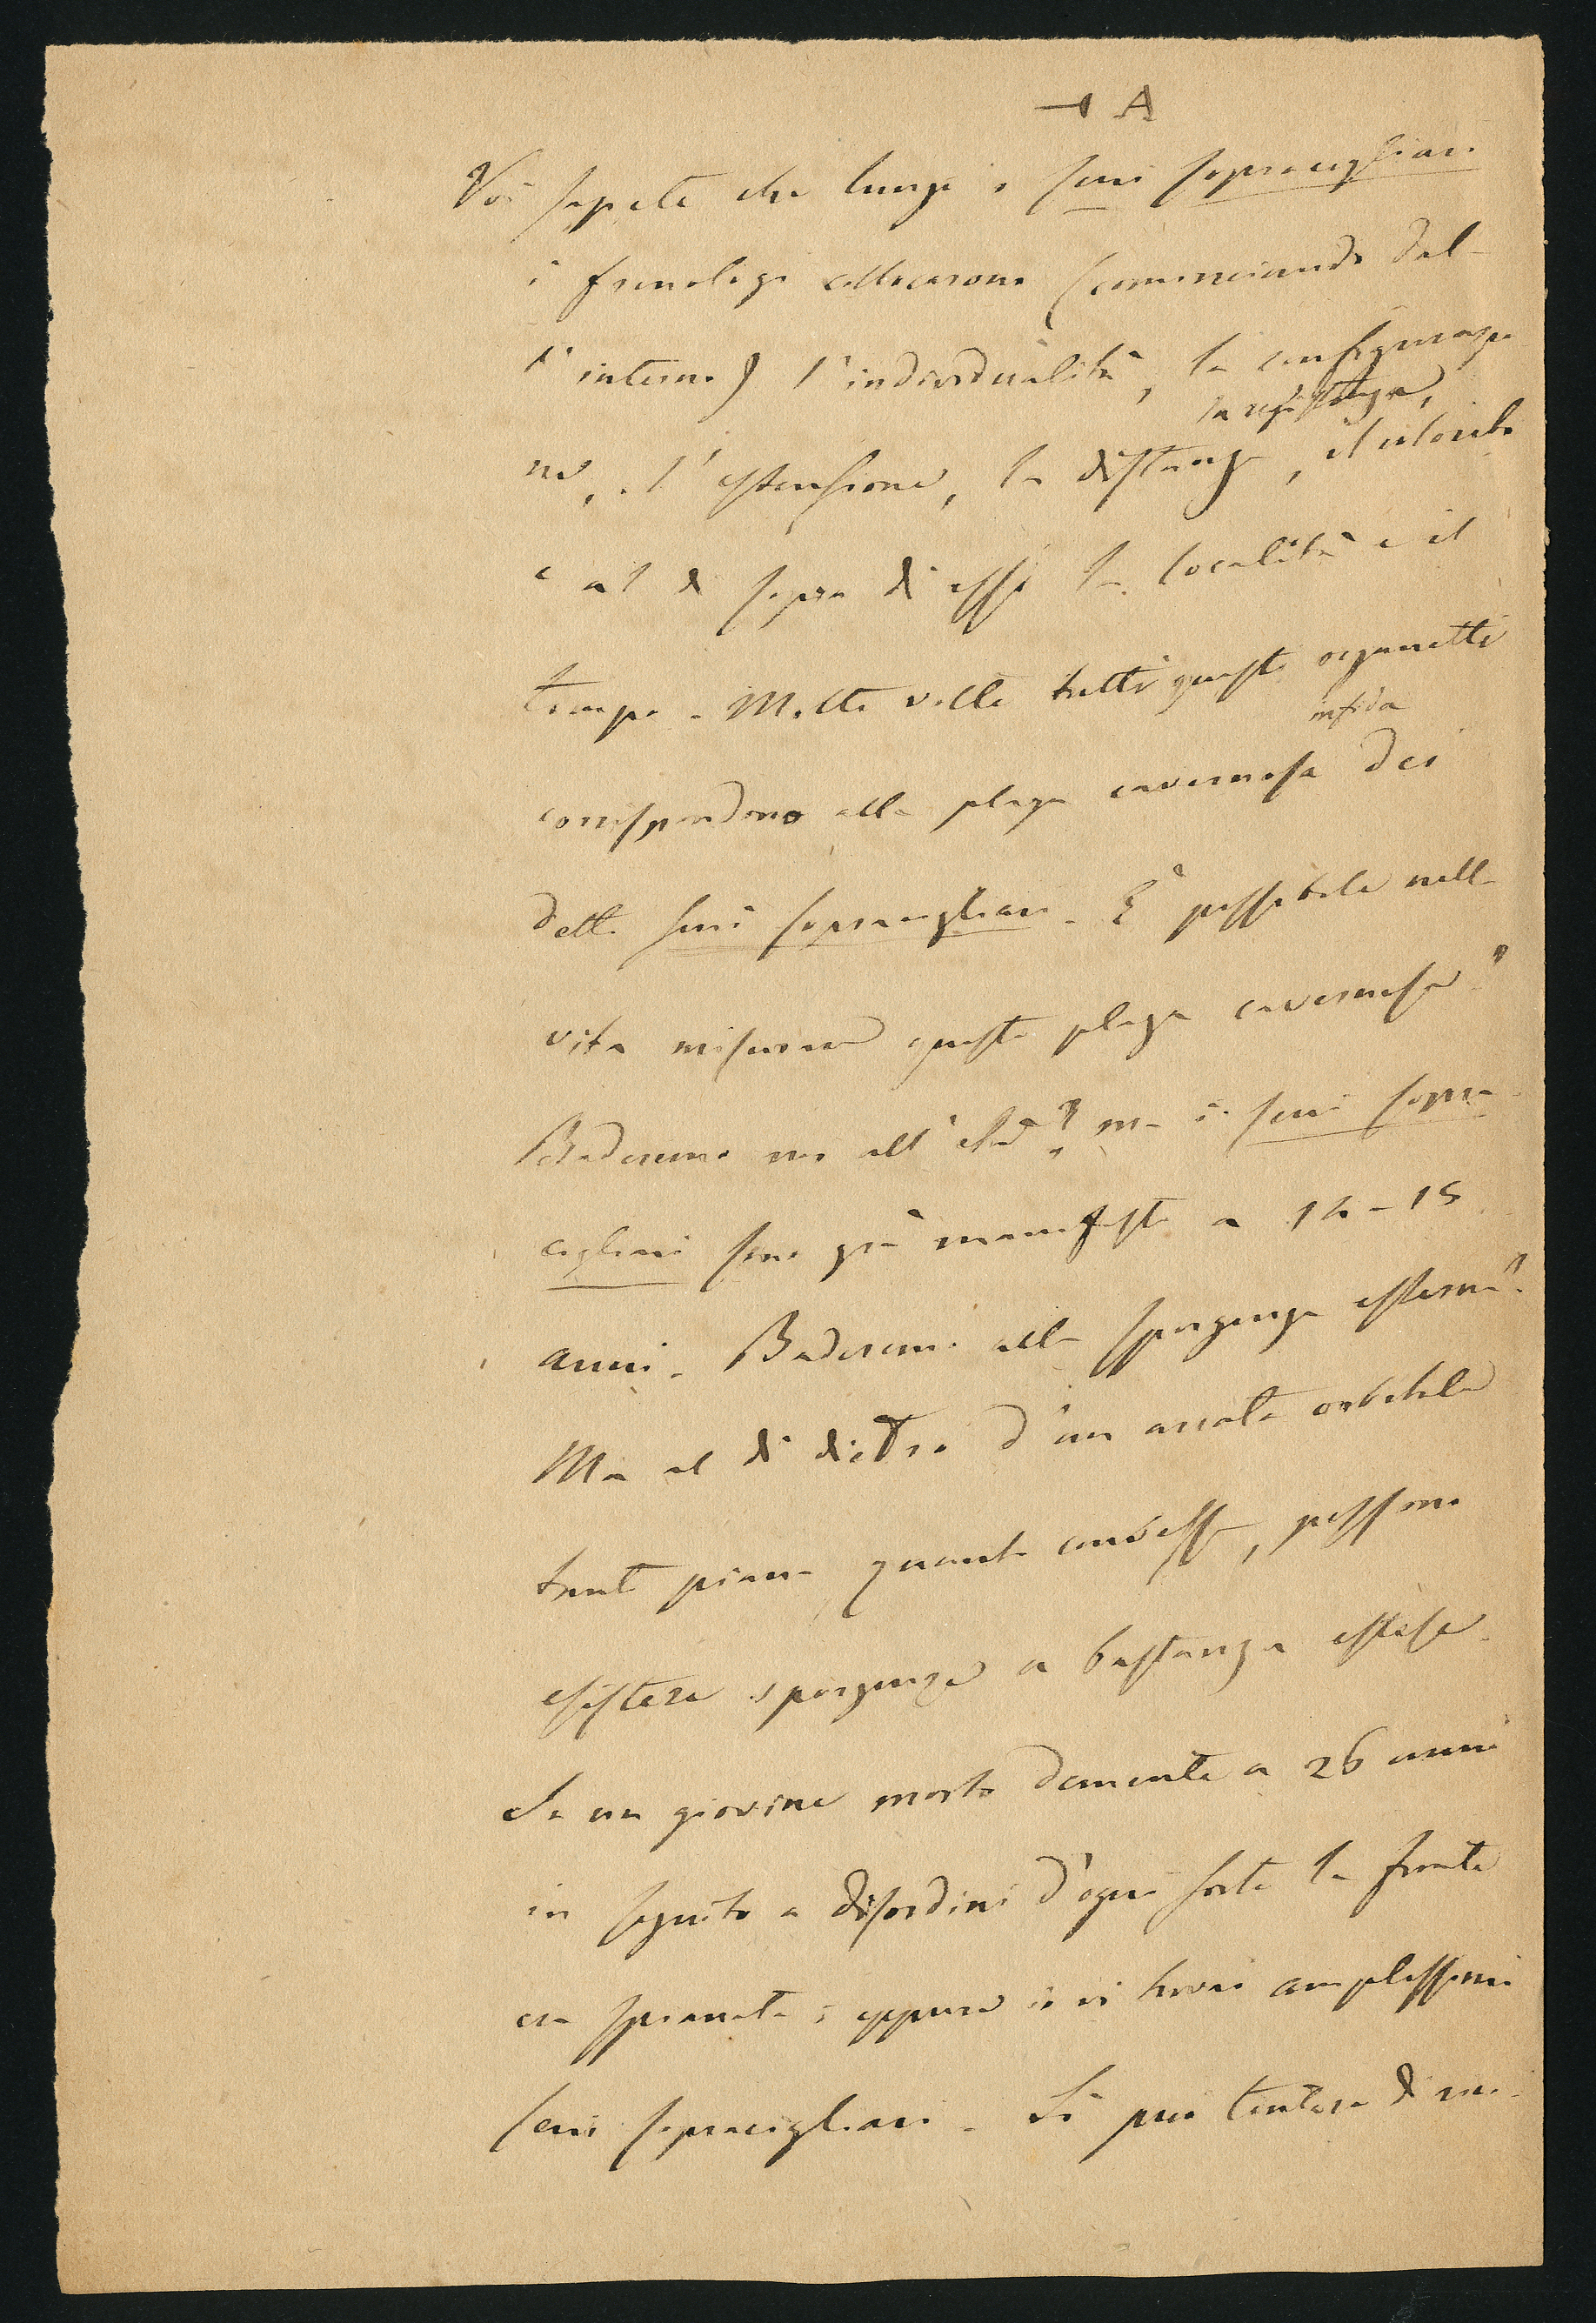 A
Voi sapete che lungo i seni sopraccigliari
i frenologi collocarono (cominciando dal-
l'interno) l'individualità, la configurazio
la resistenza,
ne, l'estensione, la distanza, il colorito
e al di sopra di essi la località e il
tempo. Molte volte tutti questi organetti
infida
corrispondono alla plaga cavernosa dei
detti seni sopraccigliari. È possibile nella
vita misurare questa plaga cavernosa?
Baderemo noi all'età? ma i seni sopra
cigliari sono già manifesti a 14-15
anni. Baderemo alla sporgenza esterna?
Ma al di dietro d'un arcata orbitale
tanto piana quanto convessa, possono
esistere sporgenze a bastanza estese.
In un giovine morto demente a 26 anni
in seguito a disordini d'ogni sorta la fronte
era spianata; eppure io vi trovai amplissimi
seni sopraccigliari. Si può tentare di mi-